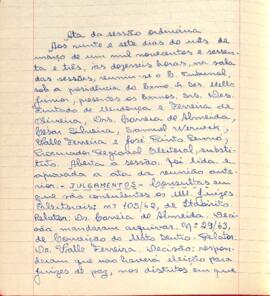 Ata da sessão ordinária
Aos vinte e sete dias do mês de
março de um mil novecentos e sessen-
ta e três, às dezesseis horas, na sala
das sessões, reuniu-se o E. Tribunal,
sob a presidência do Exmo. Sr. Des. Mello
Júnior, presentes os Exmos. Srs. Des.
Furtado de Mendonça e Ferreira de
Oliveira, Drs. Correia de Almeida,
César Silveira, Samuel Werneck,
Valle Ferreira e José Pinto
Procurador Regional Eleitoral, substi-
tuto. Aberta a sessão foi lida e
aprovada a ata da reunião ante-
rior. - JULGAMENTOS - Consultas em
que são consulentes os MM. Juízes
Eleitorais: nº 105/62, de Itabirito.
Relator: Dr. Correia de Almeida. Deci-
são: mandaram arquivar. Nº 29/63,
de Conceição do Mato Dentro. Relator:
Dr. Valle Ferreira. Decisão: respon-
deram que não haverá eleição para
juízes de paz, nos distritos em que